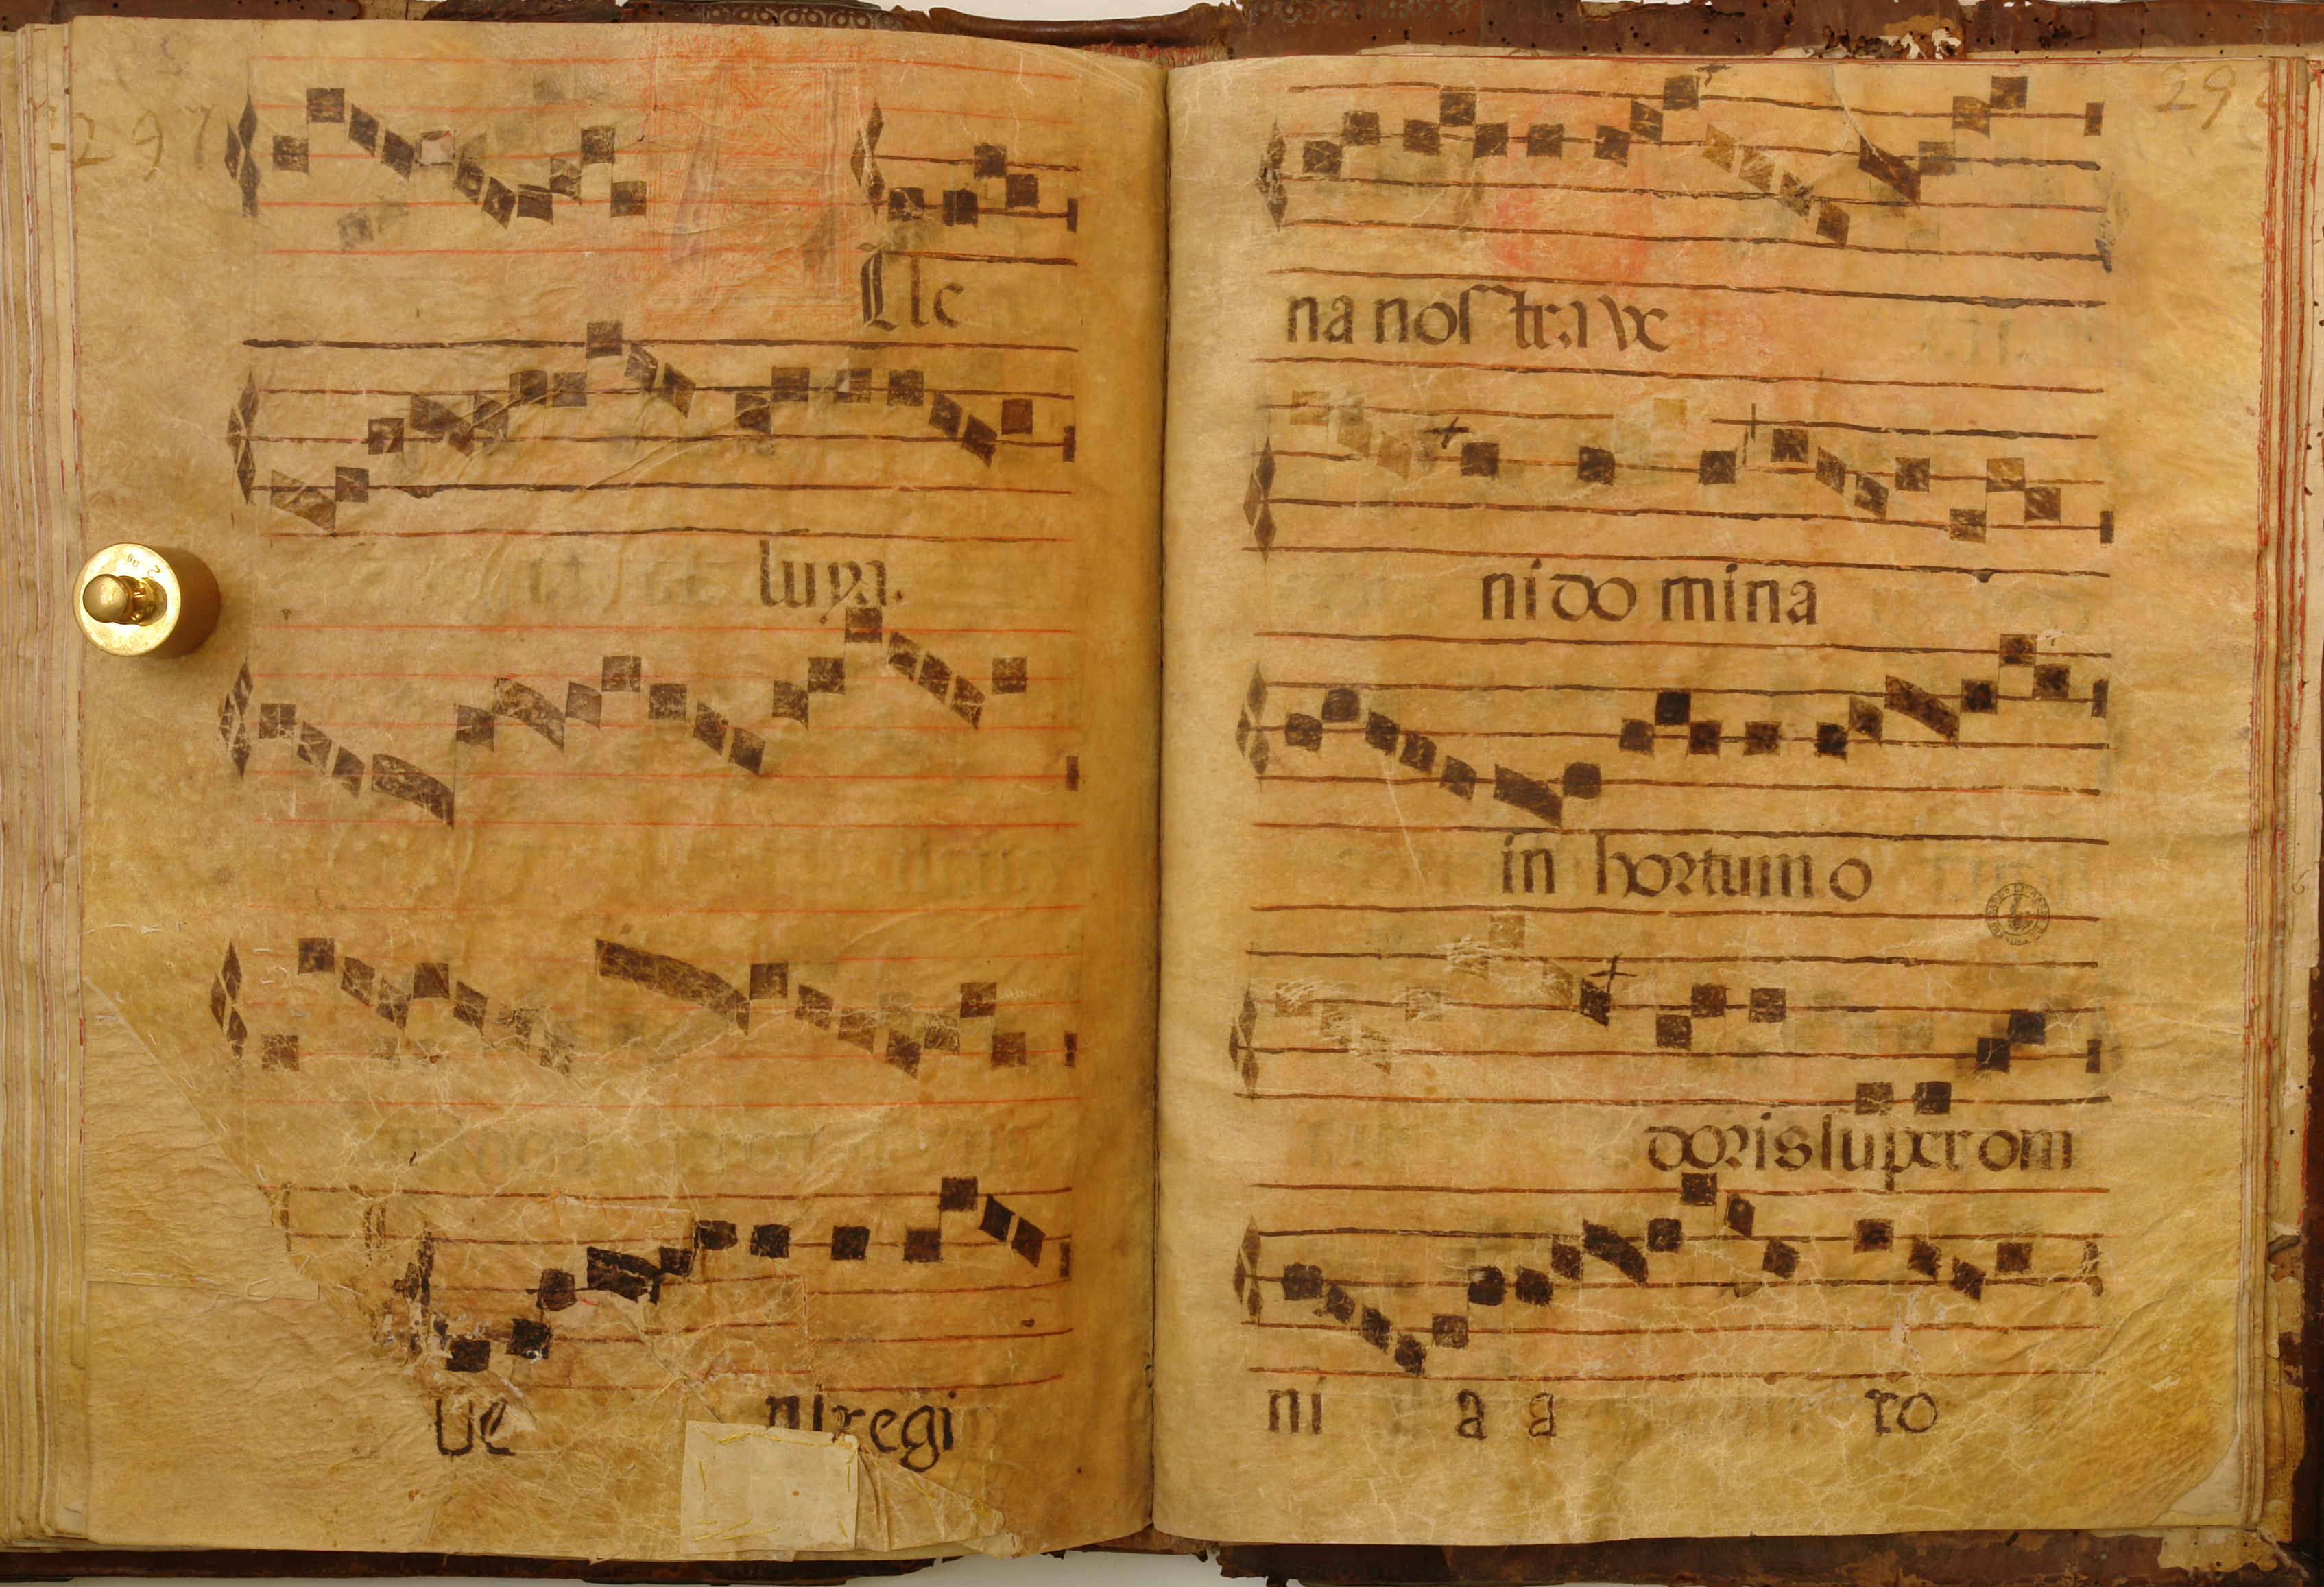 297
lle
luya.
ue ni regi
292
na nostra ve
ni domina
in hortum o
doris super om
ni a a ro